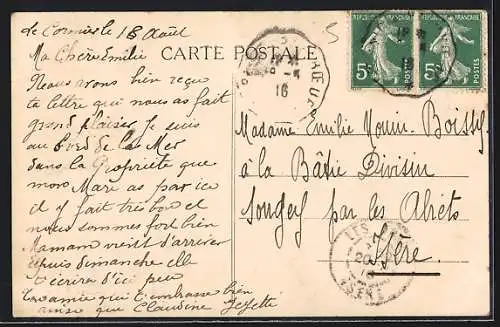 le Cormier le 18 Août
CARTE POSTALE
Ma Chère Emilie
Nous avons bien reçu
ta lettre qui nous as fait
grand plaisir Je suis
au bord de la Mer
dans la Propriété que
mon Mare as par ici
il y fait très bon et
nous sommes fort bien
Maman vient d'arriver
depuis dimanche elle
t'écrira d'ici peu
ton amie qui t'embrasse bien
ainsi que Claudine
Madame Emilie Boissy
à la Bâtie Divisin
par les Abrets
Isère
5
16
REPUBLIQUE FRANÇAISE
5c
REPUBLIQUE FRANÇAISE
5c
LES
20
ISERE